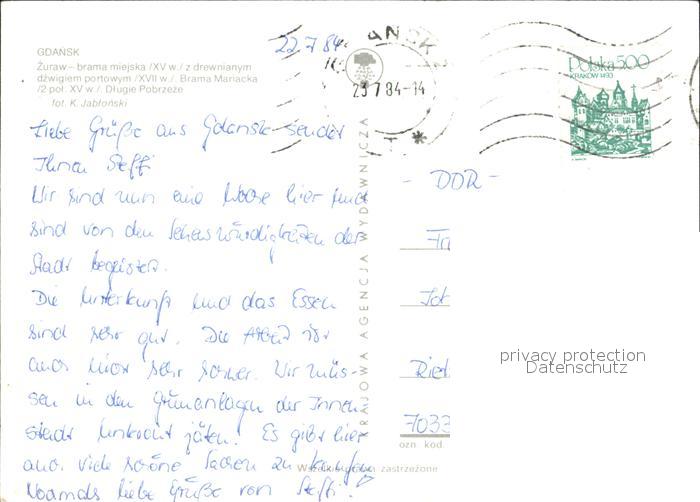 GDAŃSK
Żuraw – brama miejska /XV w./ z drewnianym
dźwigiem portowym /XVII w./. Brama Mariacka
/2 poł. XV w./. Długie Pobrzeże
fot. K. Jabłoński
22.7.84
23.7.84-14
Polska 5,00
KRAKÓW 1493
KRAJOWA AGENCJA WYDAWNICZA
Liebe Grüße aus Gdansk sendet
Ihnen Steffi
Wir sind nun eine Woche hier und
sind von den Sehenswürdigkeiten der
Stadt begeistert.
Die Unterkunft und das Essen
sind sehr gut. Die Arbeit ist
auch nicht sehr schwer. Wir müs-
sen in den Grünanlagen der Innen-
stadt Unkraut jäten. Es gibt hier
auch viele schöne Sachen zu kaufen
Nochmals liebe Grüße von Steffi!
- DDR -
7033
ozn. kod.
Wszelkie prawa zastrzeżone
privacy protection
Datenschutz